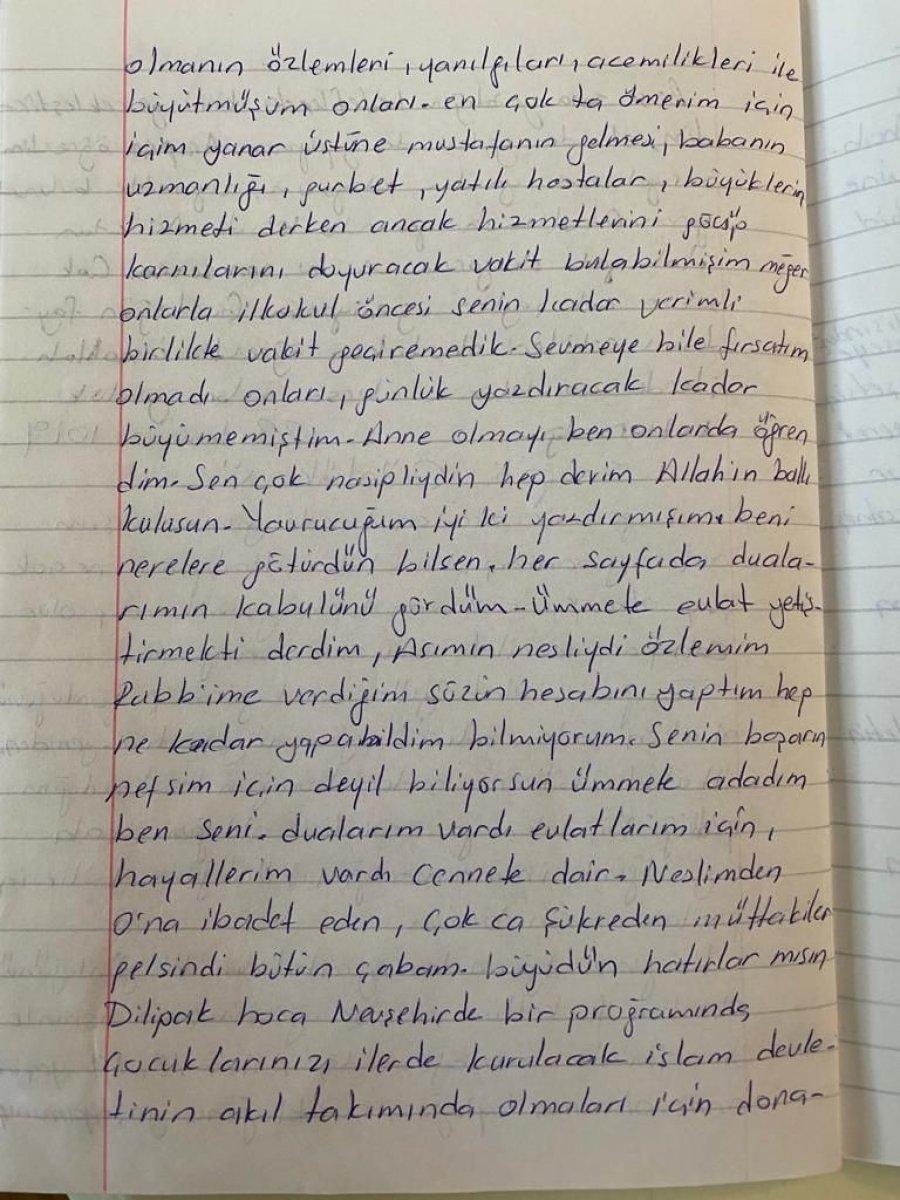 olmanın özlemleri, yanılgıları, acemilikleri ile
büyütmüşüm onları. en çok ta ömerim için
içim yanar üstüne mustafanın gelmesi, babanın
uzmanlığı, gurbet, yatılı hastalar, büyüklerin
hizmeti derken ancak hizmetlerini
karnılarını doyuracak vakit bulabilmişim meğer
onlarla ilkokul öncesi senin kadar verimli
birlikte vakit geçiremedik. Sevmeye bile fırsatım
olmadı onları, günlük yazdıracak kadar
büyümemiştim. Anne olmayı ben onlarda öğren
dim. Sen çok nasipliydin hep derim Allahın ballı
kulusun. Yavrucuğum iyi ki yazdırmışım. beni
nerelere götürdün bilsen. her sayfada duala-
rımın kabulünü gördüm. Ümmete evlat yetiş-
tirmekti derdim, Asımın nesliydi özlemim
Rabb'ime verdiğim sözün hesabını yaptım hep
ne kadar yapabildim bilmiyorum. Senin başarın
nefsim için deyil biliyorsun Ümmete adadım
ben seni. dualarım vardı evlatlarım için,
hayallerim vardı Cennete dair. Neslimden
O'na ibadet eden, çok ca şükreden müttakiler
gelsindi bütün çabam. büyüdün hatırlar mısın
Dilipak hoca Nevşehirde bir proğramında
Çocuklarınızı ilerde kurulacak islam devle-
tinin akıl takımında olmaları için dona-